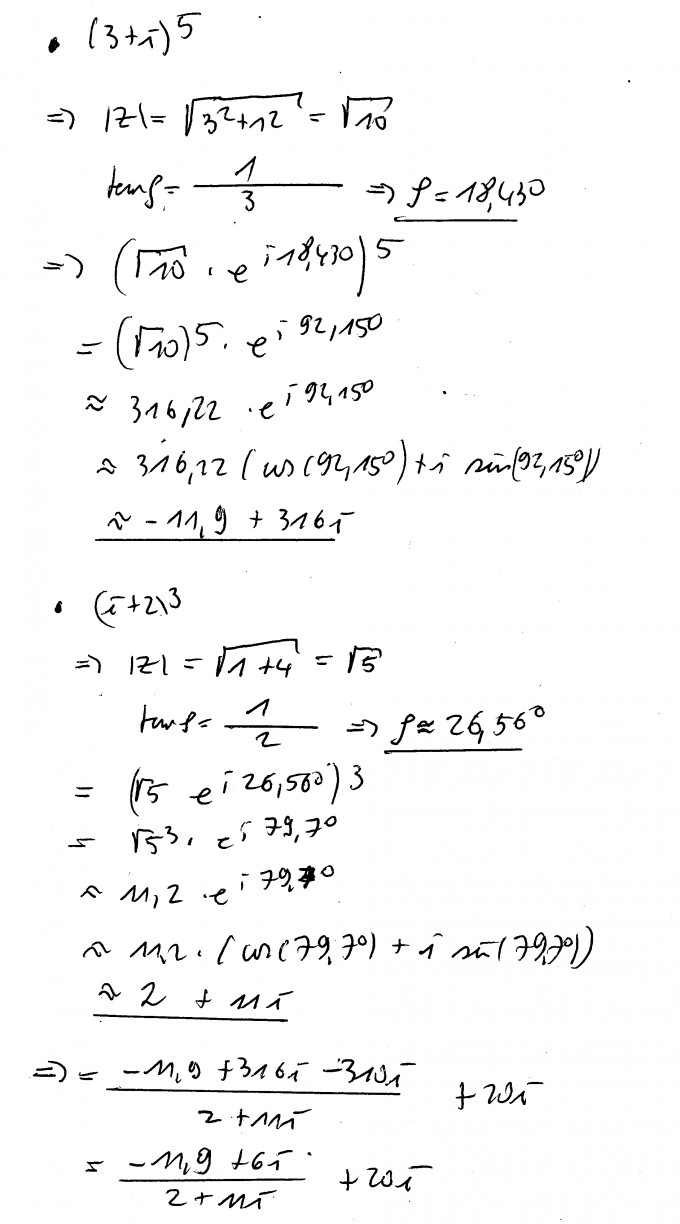 • (3+i)^5
=> |z| = √(3²+1²) = √10
tan φ = 1/3 => φ = 18,43°
=> (√10 · e^(i 18,43°))^5
= (√10)^5 · e^(i 92,15°)
≈ 316,22 · e^(i 92,15°)
≈ 316,22 (cos(92,15°) + i sin(92,15°))
≈ -11,9 + 316i
• (i+2)^3
=> |z| = √(1+4) = √5
tan φ = 1/2 => φ ≈ 26,56°
= (√5 e^(i 26,56°))^3
= √5^3 · e^(i 79,7°)
≈ 11,2 · e^(i 79,7°)
≈ 11,2 · (cos(79,7°) + i sin(79,7°))
≈ 2 + 11i
=> = (-11,9 + 316i - 310i)/(2 + 11i) + 20i
= (-11,9 + 6i)/(2 + 11i) + 20i